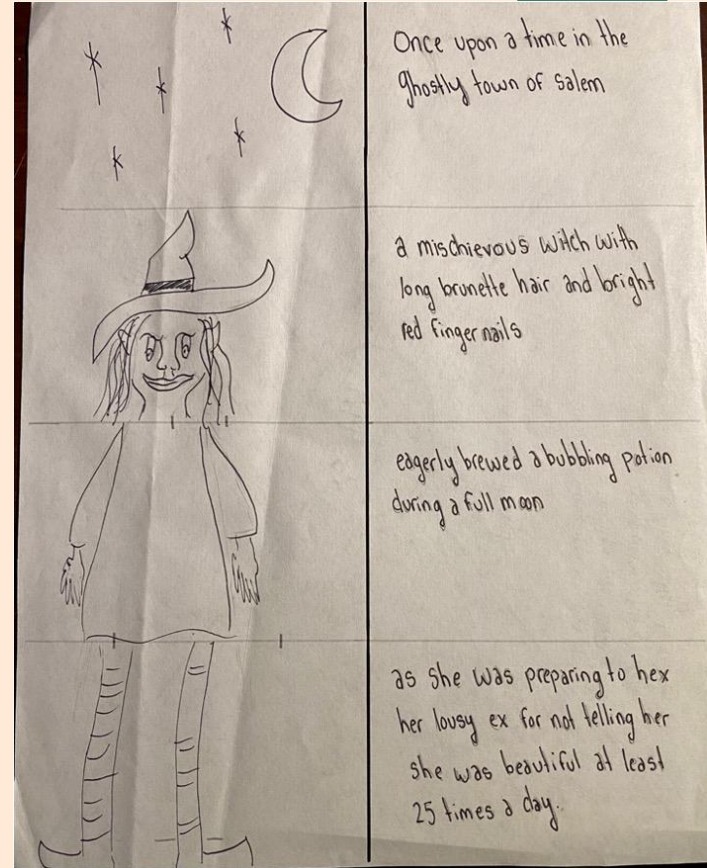 Once upon a time in the
ghostly town of Salem
a mischievous witch with
long brunette hair and bright
red fingernails
eagerly brewed a bubbling potion
during a full moon
as she was preparing to hex
her lousy ex for not telling her
she was beautiful at least
25 times a day.